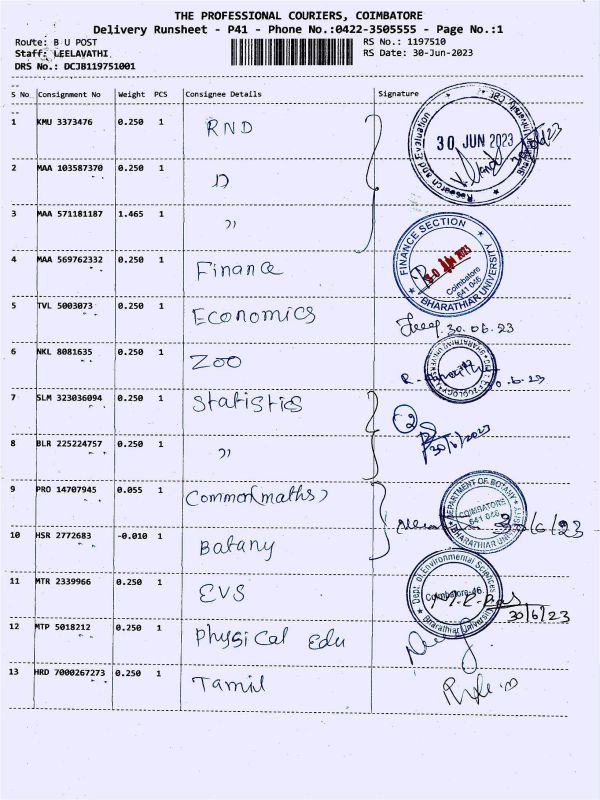 THE PROFESSIONAL COURIERS, COIMBATORE
Delivery Runsheet - P41 - Phone No.:0422-3505555 - Page No.:1
Route: B U POST
RS No.: 1197510
Staff: LEELAVATHI
RS Date: 30-Jun-2023
DRS No.: DCJB119751001
S No Consignment No Weight PCS Consignee Details Signature
1 KMU 3373476 0.250 1 RND
Research and Evaluation
30 JUN 2023
2 MAA 103587370 0.250 1
3 MAA 571181187 1.465 1 "
4 MAA 569762332 0.250 1 Finance
FINANCE SECTION
Coimbatore
641 046
BHARATHIAR UNIVERSITY
5 TVL 5003073 0.250 1 Economics
30.06.23
6 NKL 8081635 0.250 1 Zoo
7 SLM 323036094 0.250 1 Statistics
2
30/6/2023
8 BLR 225224757 0.250 1 "
9 PRO 14707945 0.055 1 Common(maths)
DEPARTMENT OF BOTANY
COIMBATORE
641 046
BHARATHIAR UNIVERSITY
30/6/23
10 HSR 2772683 -0.010 1 Batany
11 MTR 2339966 0.250 1 EVS
Dept. of Environmental Sciences
Coimbatore-46.
Bharathiar University
30/6/23
12 MTP 5018212 0.250 1 Physical Edu
13 HRD 7000267273 0.250 1 Tamil